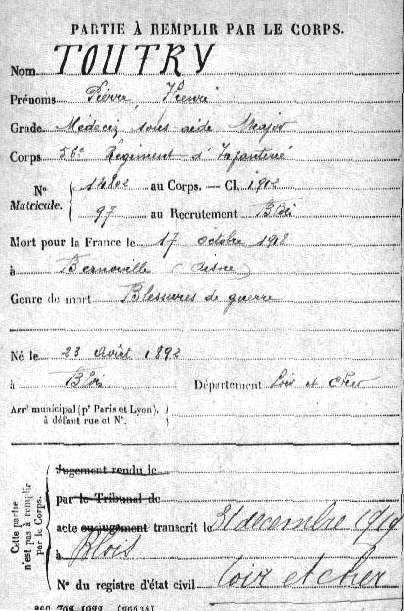 PARTIE À REMPLIR PAR LE CORPS.
Nom TOUTRY
Prénoms Pierre, Henri
Grade Médecin sous aide Major
Corps 56e Régiment d'Infanterie
No Matricule. 1482 au Corps. — Cl. 1912
97 au Recrutement Blois
Mort pour la France le 17 octobre 1918
à Bernoville (Aisne)
Genre de mort Blessures de guerre
Né le 23 Août 1892
à Blois Département Loir et Cher
Arrt municipal (pr Paris et Lyon),
à défaut rue et No.
Cette partie n'est pas à remplir par le Corps.
Jugement rendu le
par le Tribunal de
acte ou jugement transcrit le 31 décembre 1919
à Blois
No du registre d'état civil Loir et Cher